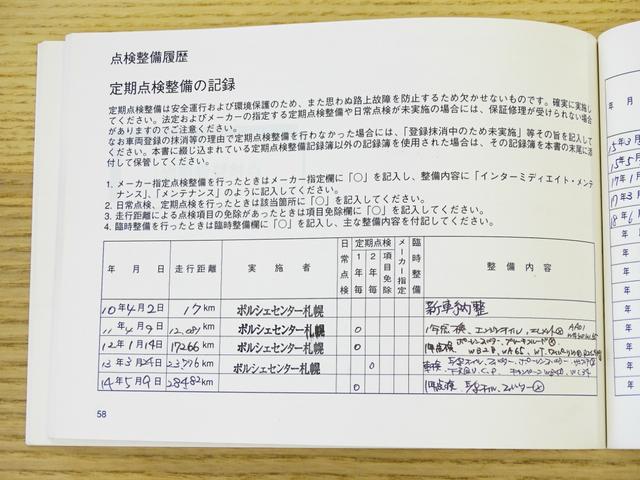 点検整備履歴
定期点検整備の記録
定期点検整備は安全運行および環境保護のため、また思わぬ路上故障を防止するため欠かせないものです。確実に実施し
てください。法定およびメーカーの指定する定期点検整備や日常点検が未実施の場合には、保証修理が受けられない場合
がありますのでご注意ください。
なお車両登録の抹消等の理由で定期点検整備を行わなかった場合には、「登録抹消中のため未実施」等その旨を記入して
ください。本書に綴じ込まれている定期点検整備記録簿以外の記録簿を使用された場合は、その記録簿を本書の末尾に添
付して保管してください。
1. メーカー指定点検整備を行ったときはメーカー指定欄に「○」を記入し、整備内容に「インターミディエイト・メンテ
ナンス」、「メンテナンス」のように記入してください。
2. 日常点検、定期点検を行ったときは該当箇所に「○」を記入してください。
3. 走行距離による点検項目の免除があったときは項目免除欄に「○」を記入してください。
4. 臨時整備を行ったときは臨時整備欄に「○」を記入し、主な整備内容を付記してください。
年 月 日 走行距離 実施者 日常点検 定期点検 1年毎 2年毎 項目免除 メーカー指定 臨時整備 整備内容
10年4月2日 17km ポルシェセンター札幌 新車納整
11年4月9日 km ポルシェセンター札幌 ○ 1年点検、エンジンオイル、
12年1月14日 17266km ポルシェセンター札幌 ○ 1年点検
13年3月24日 23776km ポルシェセンター札幌 ○ 車検
14年5月9日 28482km ○ 1年点検
58